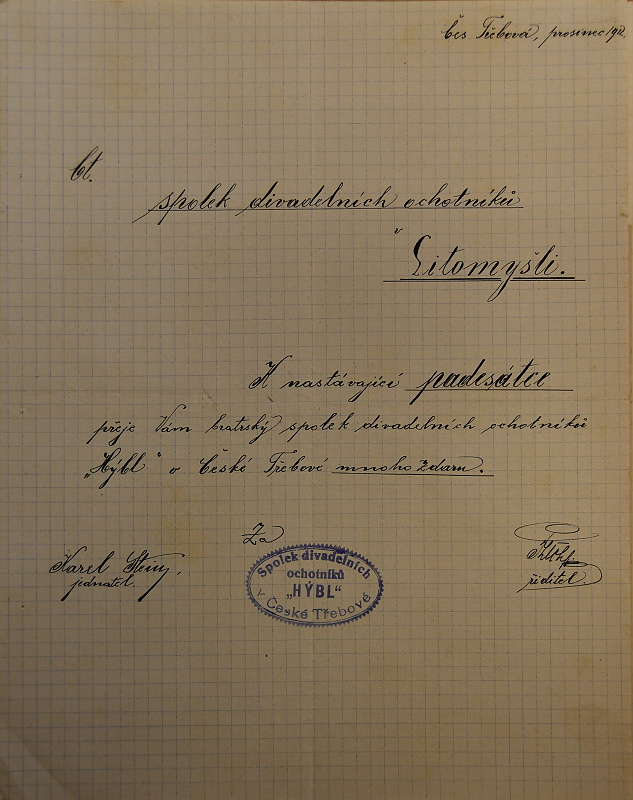 Čes. Třebová, prosinec
Ct.
spolek divadelních ochotníků
v
Litomyšli.
K nastávající padesátce
přeje Vám bratrský spolek divadelních ochotníků
„Hýbl“ v České Třebové mnoho zdaru.
Za
Karel
jednatel.
Spolek divadelních
ochotníků
„HÝBL“
v České Třebové
ředitel.